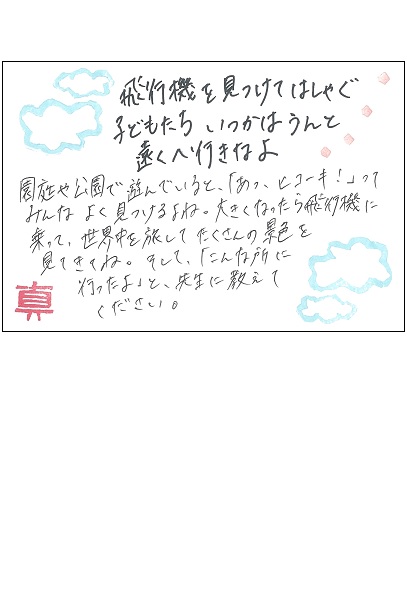 飛行機を見つけてはしゃぐ
子どもたち いつかはうんと
遠くへ行きなよ
園庭や公園で遊んでいると、「あっ、ヒコーキ！」って
みんな よく見つけるよね。大きくなったら飛行機に
乗って、世界中を旅して たくさんの景色を
見てきてね。そして、「こんな所に
行ったよ」と、先生に教えて
ください。
真